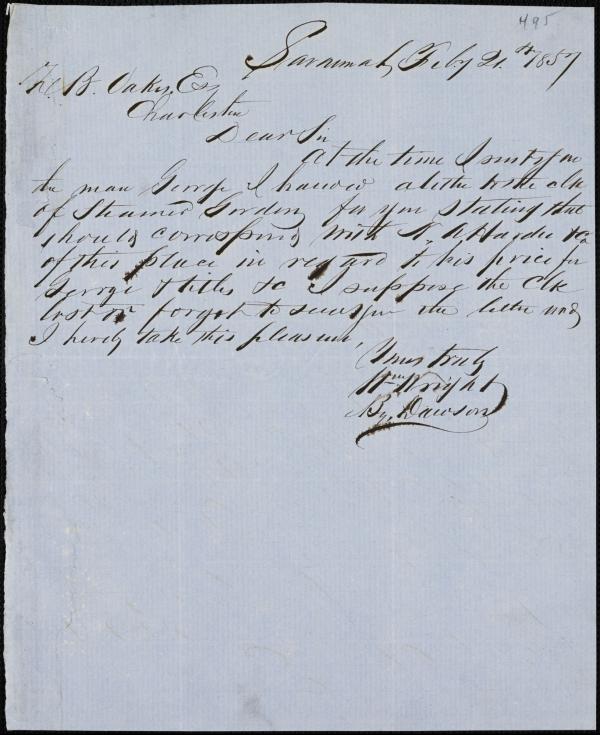 495
Savannah, Feby 21st 1857
Z. B. Oakes, Esq
Charleston
Dear Sir
At the time I sent you
the man George I handed a letter to the Clk
of Steamer Gordon for you stating that
should correspond with N. A. Hardee & Co
of this place in regard to his price for
George & titles &c I suppose the Clk
lost or forgot to send you the letter and
I hereby take this pleasure,
Yours truly
Wm Wright
By, Dawson